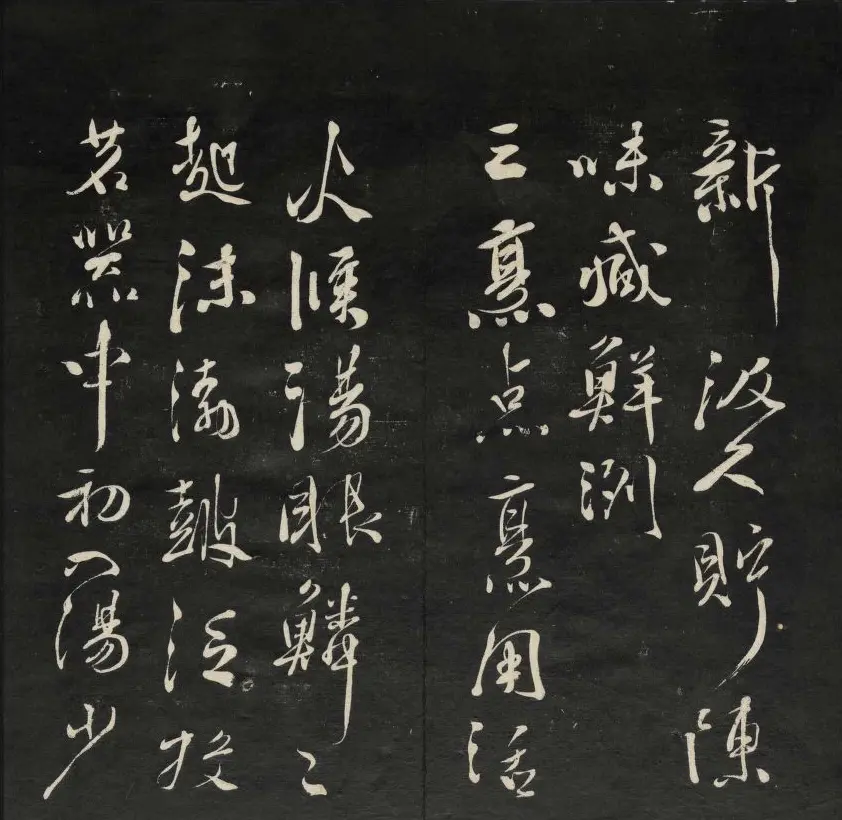 新汲久貯陳
味減鮮洌
三烹点烹用活
火候湯眼鱗〻
起沫浡鼓泛投
茗器中初入湯少